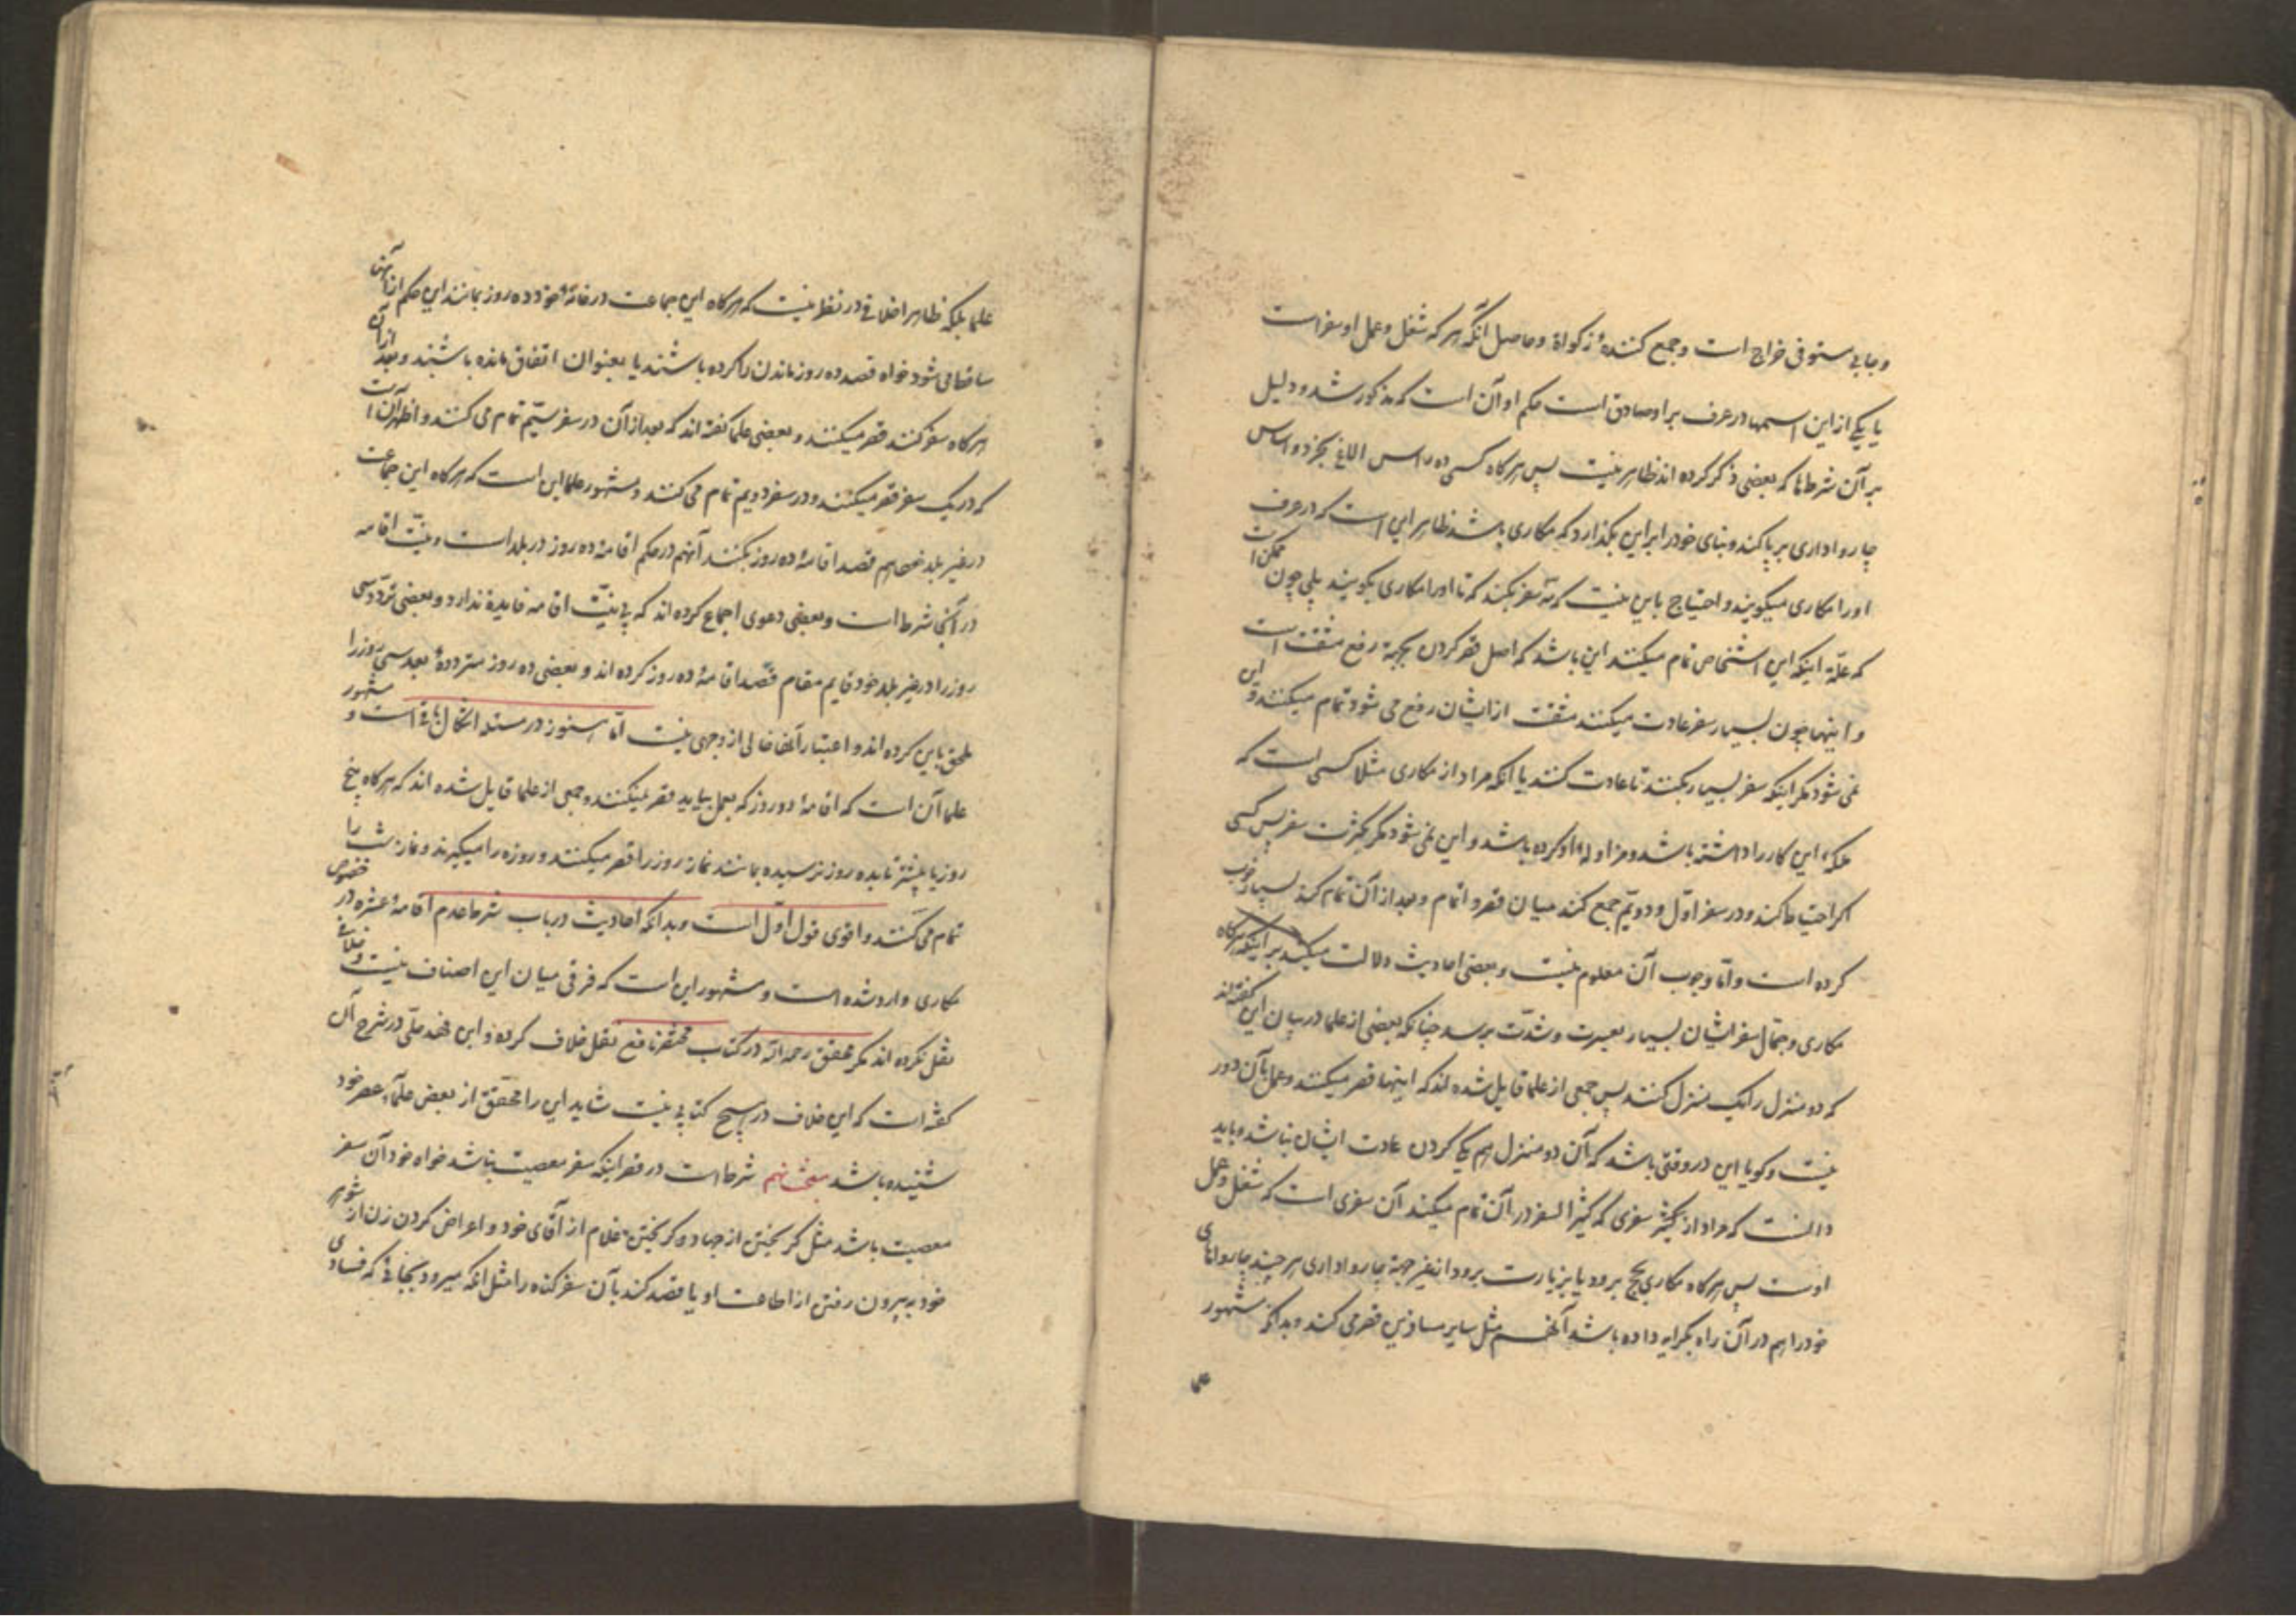 و جابی مستوفی خراج است و جمع کنندهٔ زکواة و حاصل آنکه هر که شغل و عمل او سفر است
یا یکی از این اسمها در عرف بر او صادق است حکم او آن است که مذکور شد و دلیل
بر آن شرطها که بعضی ذکر کرده اند ظاهر نیست پس هر کاه کسی ده راس الاغ بخرد و اساس
چارواداری برپا کند و بنای خود را بر این بکذارد که مکاری باشد ظاهر این است که در عرف
او را مکاری میکویند و احتیاج باین نیست که سه سفر بکند که تا او را مکاری بکویند بلی چون ممکن است
که علّة اینکه این اشخاص تمام میکنند این باشد که اصل قصر کردن بجهة رفع مشقت است
و اینها چون بسیار سفر عادت میکنند مشقت از ایشان رفع می شود تمام میکنند و این
نمی شود مکر اینکه سفر بسیار بکنند تا عادت کنند یا آنکه مراد از مکاری مثلا کسی است که
ملکهٔ این کار را داشته باشد و مزاولهٔ او کرده باشد و این نمی شود مکر بکثرت سفر پس کسی
اکر احتیاط کند و در سفر اوّل و دویّم جمع کند میان قصر و اتمام و بعد از آن تمام کند بسیار خوب
کرده است و امّا وجوب آن معلوم نیست و بعضی احادیث دلالت میکند بر اینکه هرکاه
مکاری و جمّال سفر ایشان بسیار بعسرت و شدّت برسد چنانکه بعضی از علما در بیان این کفته اند
که دو منزل را یک منزل کنند پس جمعی از علما قایل شده اند که اینها قصر میکنند و عمل بآن دور
نیست و کویا این در وقتی باشد که آن دو منزل هم یکی کردن عادت ایشان نباشد و باید
دانست که مراد از کثیر سفری که کثیر السفر در آن تمام میکند آن سفری است که شغل و عمل
اوست پس هرکاه مکاری بحج برود یا بزیارت برود از غیر جهة چارواداری هر چند چارواهای
خود را هم در آن راه بکرایه داده باشد آنهم مثل سایر مسافرین قصر می کند و بدانکه مشهور
علما
علما بلکه ظاهر اخلافی در نظر نیست که هرکاه این جماعت در خانهٔ خود ده روز بمانند این حکم از آنها
ساقط می شود خواه قصد ده روز ماندن را کرده باشند یا بعنوان اتفاق مانده باشند و بعد از آن
هرکاه سفر کنند قصر میکنند و بعضی علما کفته اند که بعد از آن در سفر سیّم تمام می کنند و اظهر آن است
که در یک سفر قصر میکنند و در سفر دویم تمام می کنند و مشهور علما این است که هرکاه این جماعت
در غیر بلد خود هم قصد اقامهٔ ده روز بکنند آنهم در حکم اقامهٔ ده روز در بلد است و نیّت اقامه
در آنجا شرط است و بعضی دعوی اجماع کرده اند که بی نیّت اقامه فایدة ندارد و بعضی تردّد سی
روز را در غیر بلد خود قایم مقام قصد اقامهٔ ده روز کرده اند و بعضی ده روز متردده بعد سی روز را
ملحق باین کرده اند و اعتبار آنها خالی از وجهی نیست امّا هنوز در مسئله اشکال باقی است و مشهور
علما آن است که اقامهٔ دو روز که بعمل بیاید قصر نمیکنند و جمعی از علما قایل شده اند که هرکاه پنج
روز یا بیشتر تا بده روز نرسیده بمانند نماز روز را قصر میکنند و روزه را میکیرند و نماز شب را
تمام می کنند و اقوی قول اوّل است و بدانکه احادیث در باب شرط عدم اقامهٔ عشره در خصوص
مکاری وارد شده است و مشهور این است که فرقی میان این اصناف نیست و خلافی
نقل نکرده اند مکر محقق رحمه الله در کتاب مختصر نافع نقل خلاف کرده و ابن فهد حلّی در شرح آن
کفته است که این خلاف در هیچ کتابی نیست شاید این را محقّق از بعض علمآء عصر خود
شنیده باشد مبحث نهم شرط است در قصر اینکه سفر معصیت نباشد خواه خود آن سفر
معصیت باشد مثل کریختن از جهاد و کریختن غلام از آقای خود و اعراض کردن زن از شوهر
خود به بیرون رفتن از اطاعت او یا قصد کند بآن سفر کناه را مثل آنکه میرود بجائی که فسادی